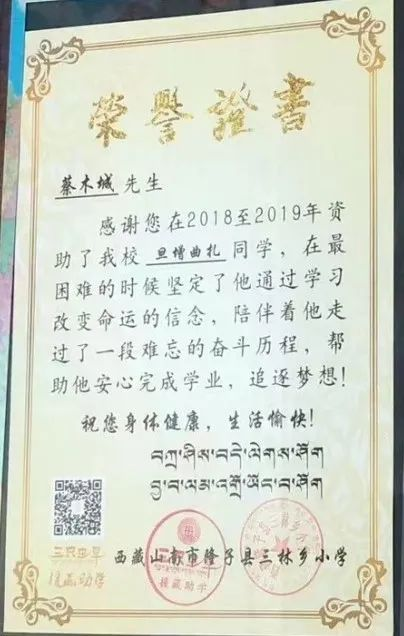 荣誉證書
蔡木城 先生
感谢您在2018至2019年资
助了我校 旦增曲扎 同学，在最
困难的时候坚定了他通过学习
改变命运的信念，陪伴着他走
过了一段难忘的奋斗历程，帮
助他安心完成学业，追逐梦想！
祝您身体健康，生活愉快！
བཀྲ་ཤིས་བདེ་ལེགས་ཤོག
援藏助学
援藏助学
西藏山南市隆子县三林乡小学